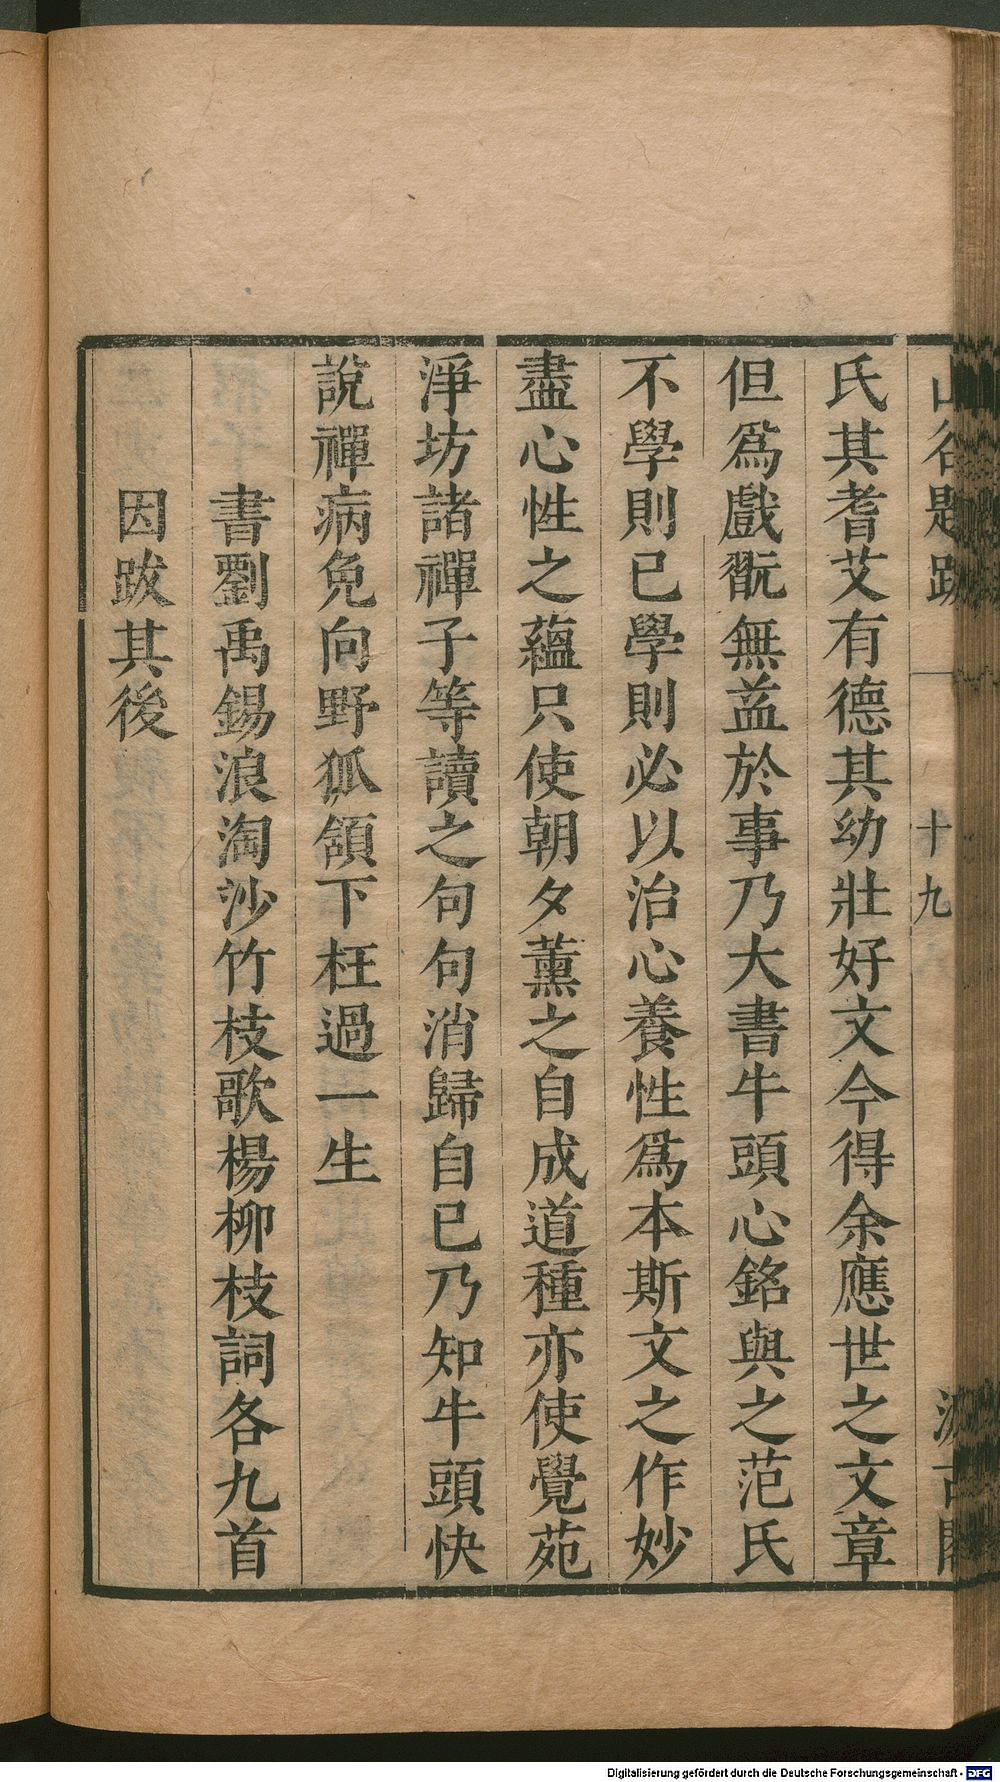 山谷題跋 十九 汲古閣
氏其耆艾有德其幼壯好文今得余應世之文章
但爲戲翫無益於事乃大書牛頭心銘與之范氏
不學則已學則必以治心養性爲本斯文之作妙
盡心性之蘊只使朝夕薰之自成道種亦使覺苑
淨坊諸禪子等讀之句句消歸自已乃知牛頭快
說禪病免向野狐頷下枉過一生
書劉禹錫浪淘沙竹枝歌楊柳枝詞各九首
因跋其後
Digitalisierung gefördert durch die Deutsche Forschungsgemeinschaft - DFG